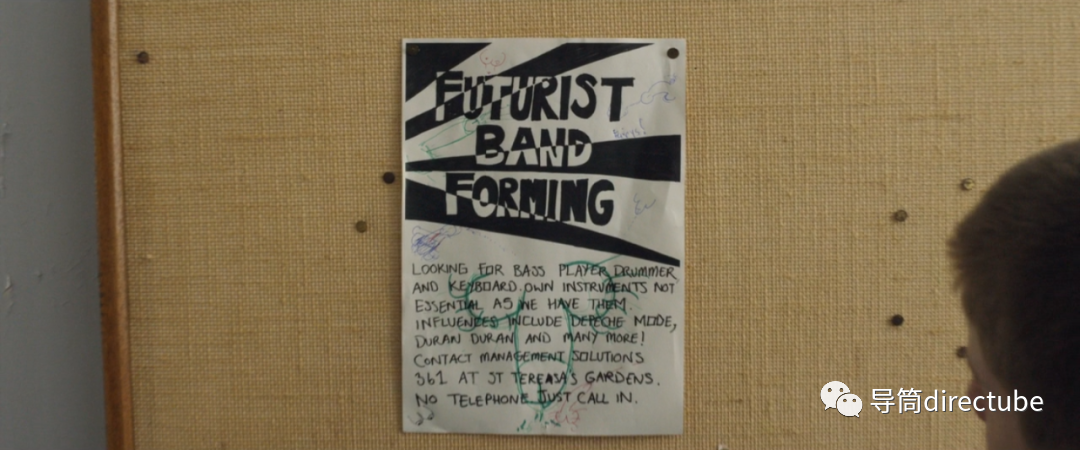 FUTURIST
BAND
FORMING
LOOKING FOR BASS PLAYER, DRUMMER
AND KEYBOARD. OWN INSTRUMENTS NOT
ESSENTIAL AS WE HAVE THEM.
INFLUENCES INCLUDE DEPECHE MODE,
DURAN DURAN AND MANY MORE!
CONTACT MANAGEMENT SOLUTIONS
361 AT ST TEREASA'S GARDENS.
NO TELEPHONE JUST CALL IN.
导筒directube